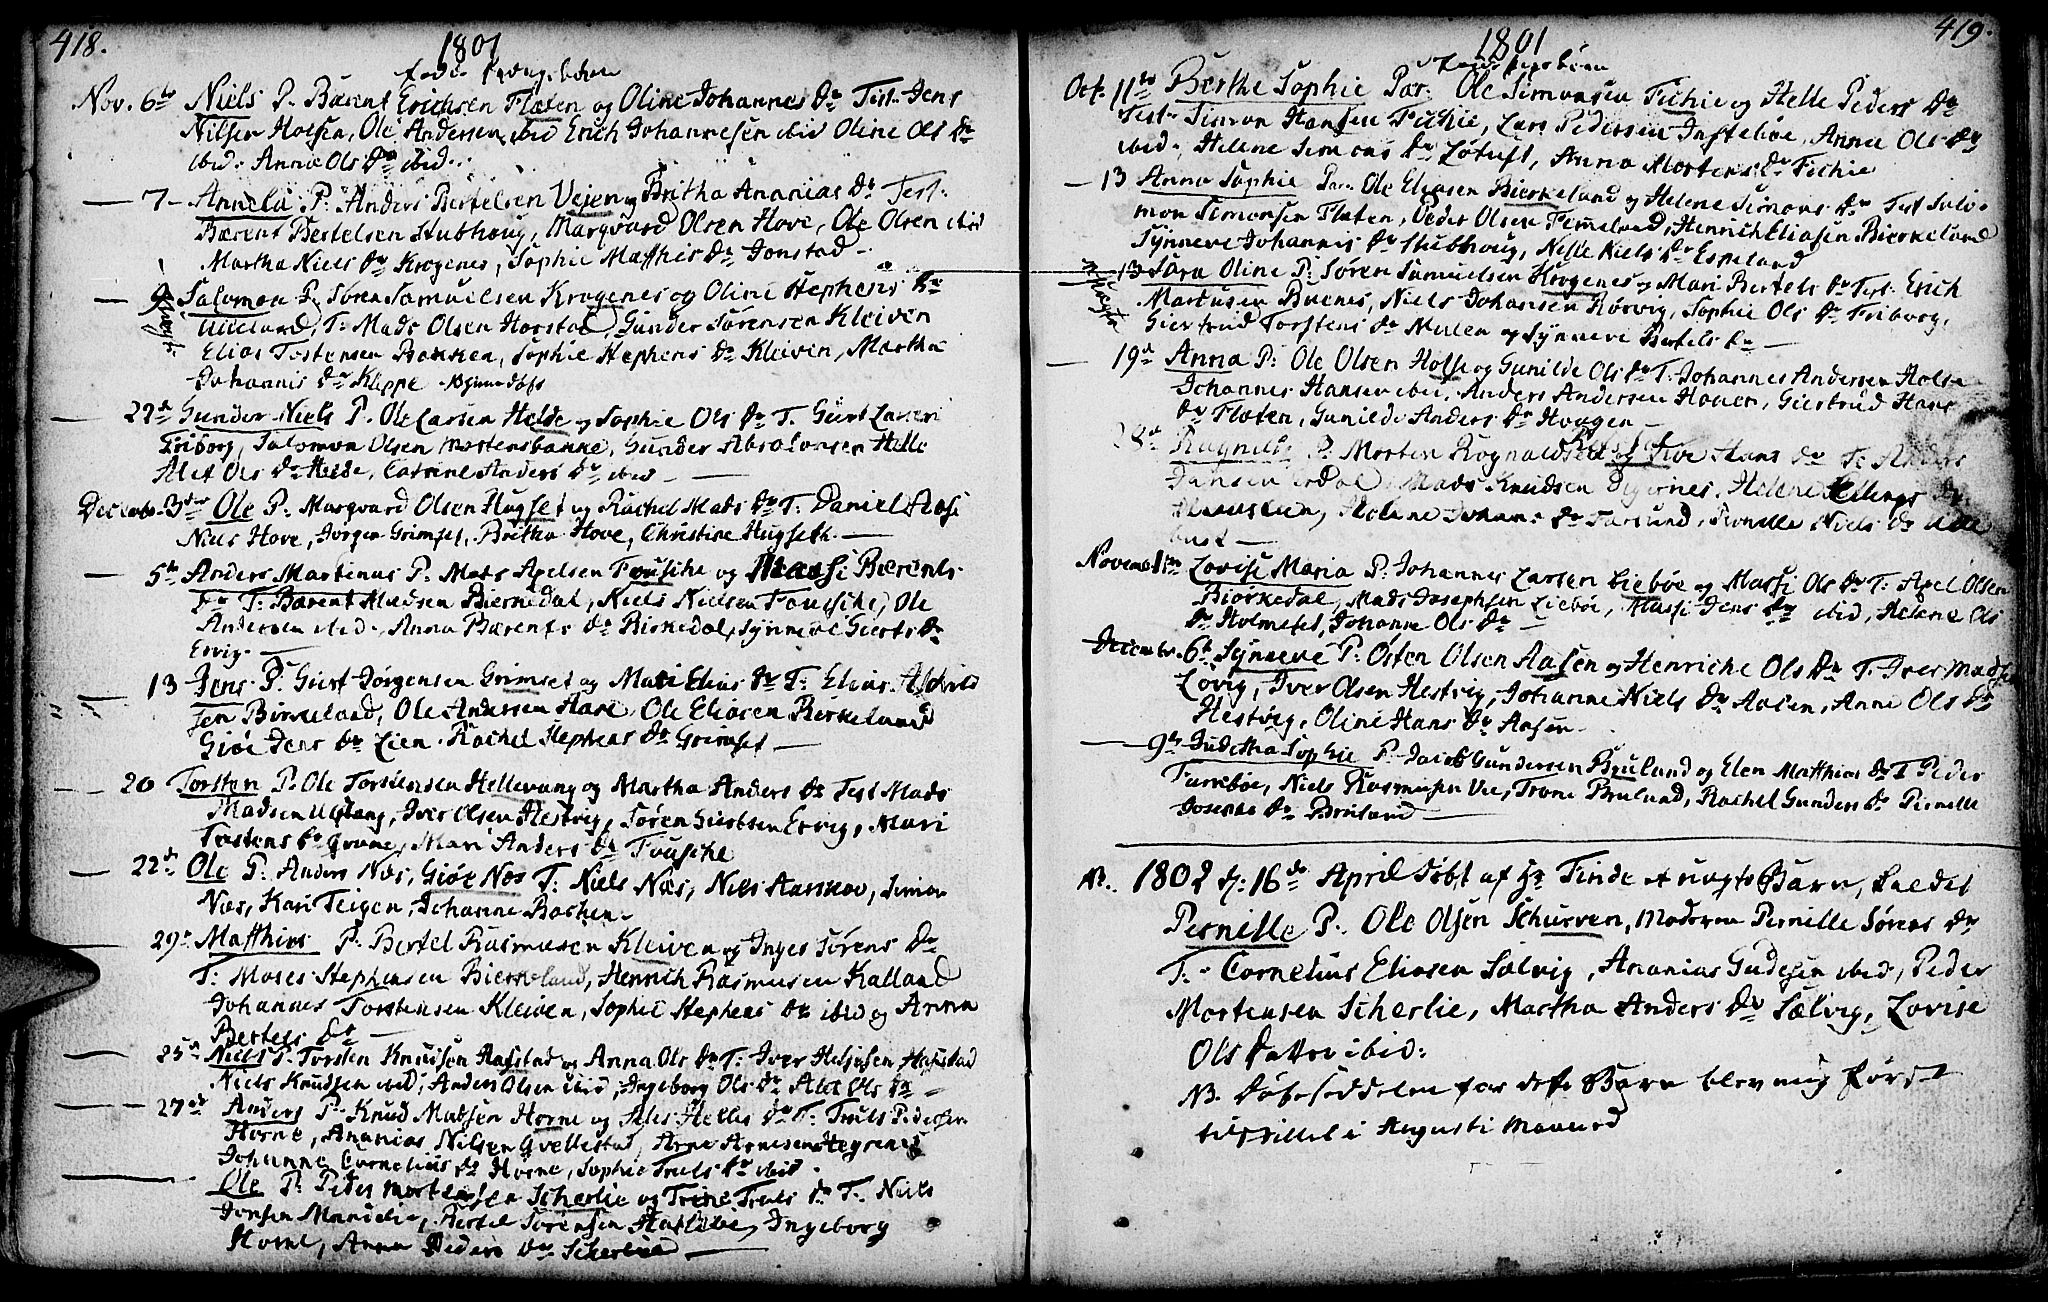 418.
1801
Nov. 6te Niels P. Bærent Erichsen Flaten og Oline Johannes Dr Test. Jens
Nilsen Holsen, Ole Andersen ibid Erich Johannesen ibid Oline Ols Dr
ibid. Anna Ols Dr ibid.
7 - Annela P. Anders Bertelsen Vejen og Britha Ananias Dr Test.
Bærent Bertelsen Stubhoug, Marqvard Olsen Hove, Ole Olsen ibid
Martha Niels Dr Krogenes, Sophie Matthis Dr Jonstad -
9 Salomon P. Søren Samuelsen Krogenes og Oline Stephens Dr
T. Mads Olsen Horstad, Gunder Sørensen Kleiven
Elias Tostensen Bakken, Sophie Stephens Dr Kleiven, Martha
Johannis Dr Kleppe
22d Gunder Niels P. Ole Larsen Helde og Sophie Ols Dr T. Giert
Friborg, Salomon Olsen Mortensbakke, Gunder Absalonsen Helle
Alet Ols Dr Helde, Catrine Anders Dr ibid -
Decemb. 3die Ole P. Marqvard Olsen Hugset og Rachel Mads Dr T. Daniel Aase
Niels Hove, Jørgen Grimset, Britha Hove, Christine Hugseth. -
5te Anders Martinus P. Mads Axelsen Fousche og Massi Bærents
Dr T. Bærent Madsen Bierkedal, Niels Nielsen Fousche, Ole
Andersen ibid., Anna Bærents Dr Birkedal, Synneve Gierts Dr
Ervig. -
13 Jens P. Giert Jørgensen Grimset og Mari Elias Dr T. Elias
sen Birkeland, Ole Andersen Hare, Ole Eliasen Berkeland
Giøe Jens Dr Lien. Rachel Stephens Dr Grimset -
20 Torsten P. Ole Torstensen Hellevang og Martha Anders Dr Test Mads
Madsen Ugland, Iver Olsen Hestvig, Søren Giertsen Ervig, Mari
Tostens Dr Grane, Mari Anders Dr Fousche
22d Ole P. Anders Næs, Giøe Næs T. Niels Næs, Niels Aarskov, Simon
Næs, Kari Teigen, Johanne Bakken -
29 Matthias P. Bertel Rasmusen Kleiven og Inger Sørens Dr
T. Moses Stephensen Bierkeland, Henrich Rasmusen Kalland
Johannes Torstensen Kleiven, Sophie Stephens Dr ibid og Anna
Bertels Dr -
25d Niels P. Torsten Knudsen Hafstad og Anna Ols Dr T. Iver Helgesen Hafstad
Niels Knudsen ibid, Anders Olsen ibid, Ingeborg Ols Dr Alet Ols Dr -
27de Anders P. Knud Madsen Horne og Siles Helles Dr T. Truls Pedersen
Horne, Ananias Nilsen Gvellestad, Arne Arnesen Hegrenes
Johanne Cornelius Dr Horne, Sophie Truls Dr ibid.
Ole P. Peder Mortensen Scherlie og Trine Truls Dr T. Niels
Jonsen Manselie, Bertel Sørensen Ingeborg
Horne, Anna Peders Dr Scherlie -
419.
1801
Oct. 11te Berthe Sophie Par. Ole Simonsen Tichie og Helle Peders Dr
Test. Simon Hansen Tichie, Lars Pedersen Instebøe, Anna Ols Dr
ibid., Helene Simons Dr Løtuft, Anna Mortens Dr Tichie
13 Anna Sophie Par. Ole Eliasen Bierkeland og Helene Simons Dr Test Salo-
mon Simonsen Flaten, Peder Olsen Femeland, Henrich Eliasen Bierkeland
Synneve Johannis Dr Stubhoug, Nille Niels Dr Espeland
13 Sara Oline P. Søren Samuelsen Krogenes og Mari Bertels Dr Test. Erich
Martusen Buenes, Niels Johansen Rørvig, Sophie Ols Dr Friborg,
Giertrud Torstens Dr Mulen og Synneve Bertels Dr -
19d Anna P. Ole Olsen Holse og Gunilde Ols Dr T. Johannes Andersen Holse
Johannes Hansen ibid, Anders Andersen Hougen, Giertrud Hans
Dr Flaten, Gunilde Anders Dr Hougen -
28d Ragnilde P. Morten Rognaldsen og Hans Dr T. Anders
Jansen Mads Knudsen Digernes, Helene Dr
Helene Johans Dr Farsund, Pernille Niels Dr
Novemb. 1ste Lovise Maria P. Johannes Larsen Liebøe og Massi Ols Dr T. Axel Olsen
Biorkedal, Mads Josephsen Liebøe, Massi Jens Dr ibid, Helene Ols
Dr Holmeset, Johanne Ols Dr -
Decemb. 6te Synneve P. Osten Olsen Aasen og Henriche Ols Dr T. Iver Madsen
Lovig, Iver Olsen Hestvig, Johanne Niels Dr Aasen, Anne Ols Dr
Hestvig, Oline Hans Dr Aasen -
9te Juditha Sophie P. Jacob Gundersen Bruland og Elen Matthias Dr T Peder
Farrebøe, Niels Rasmusen Vie, Trone Bruland, Rachel Gunders Dr Pernille
Josephs Dr Bruland -
NB. 1802 d. 16de April Døbt af Hr Tinde et uegte Barn, kaldet
Pernille P. Ole Olsen Schurven, Moderen Pernille Sørens Dr
T. Cornelius Eliasen Sælvig, Ananias Gudesen ibid, Peder
Mortensen Scherlie, Martha Anders Dr Sælvig, Lovise
Ols Datter ibid:
NB. Døbeseddelen for dette Barn blev mig først
tilstillet i Augusti Maaned